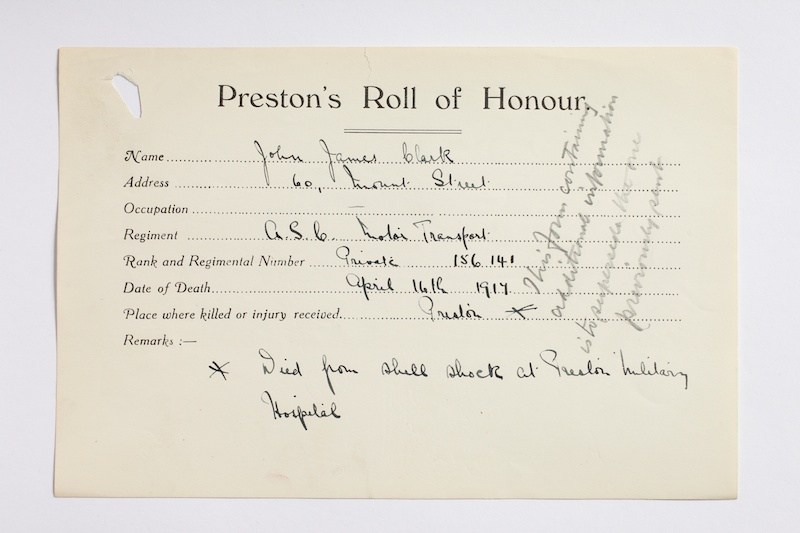 Preston's Roll of Honour.
Name John James Clark
Address 60, Mount Street
Occupation —
Regiment A.S.C. Motor Transport
Rank and Regimental Number Private 186 141
Date of Death April 16th 1917
Place where killed or injury received. Preston *
Remarks :—
* Died from shell shock at Preston Military
Hospital
This form containing
additional information
is to supersede the one
previously sent